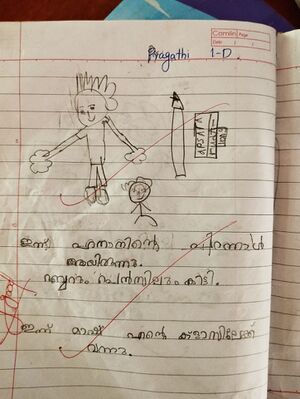 Camlin Page
Date / /
Pragathi
1-D.
APSARA
ഇന്ന് പിറന്നാൾ
ആയിരുന്നു.
റബ്ബറും പെൻസിലും കിട്ടി.
ഇന്ന് മാഷ് എന്റെ ക്ലാസിലേക്ക്
വന്നു.